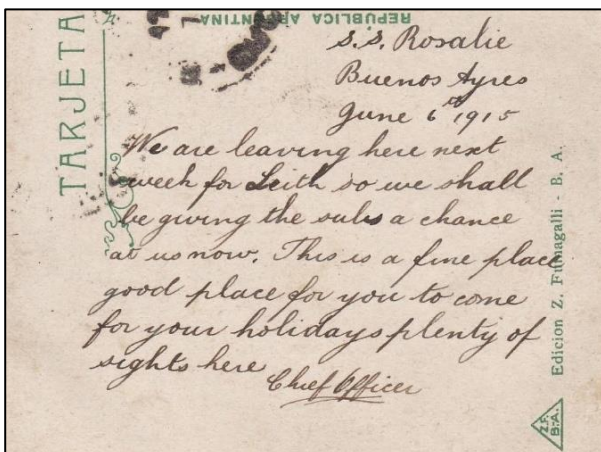 TARJETA
REPUBLICA ARGENTINA
S.S. Rosalie
Buenos Ayres
June 6th 1915
We are leaving here next
week for Leith so we shall
be giving the subs a chance
at us now. This is a fine place
good place for you to come
for your holidays plenty of
sights here
Chief Officer
Edicion Z. Fumagalli - B. A.
Z.F.
B.A.